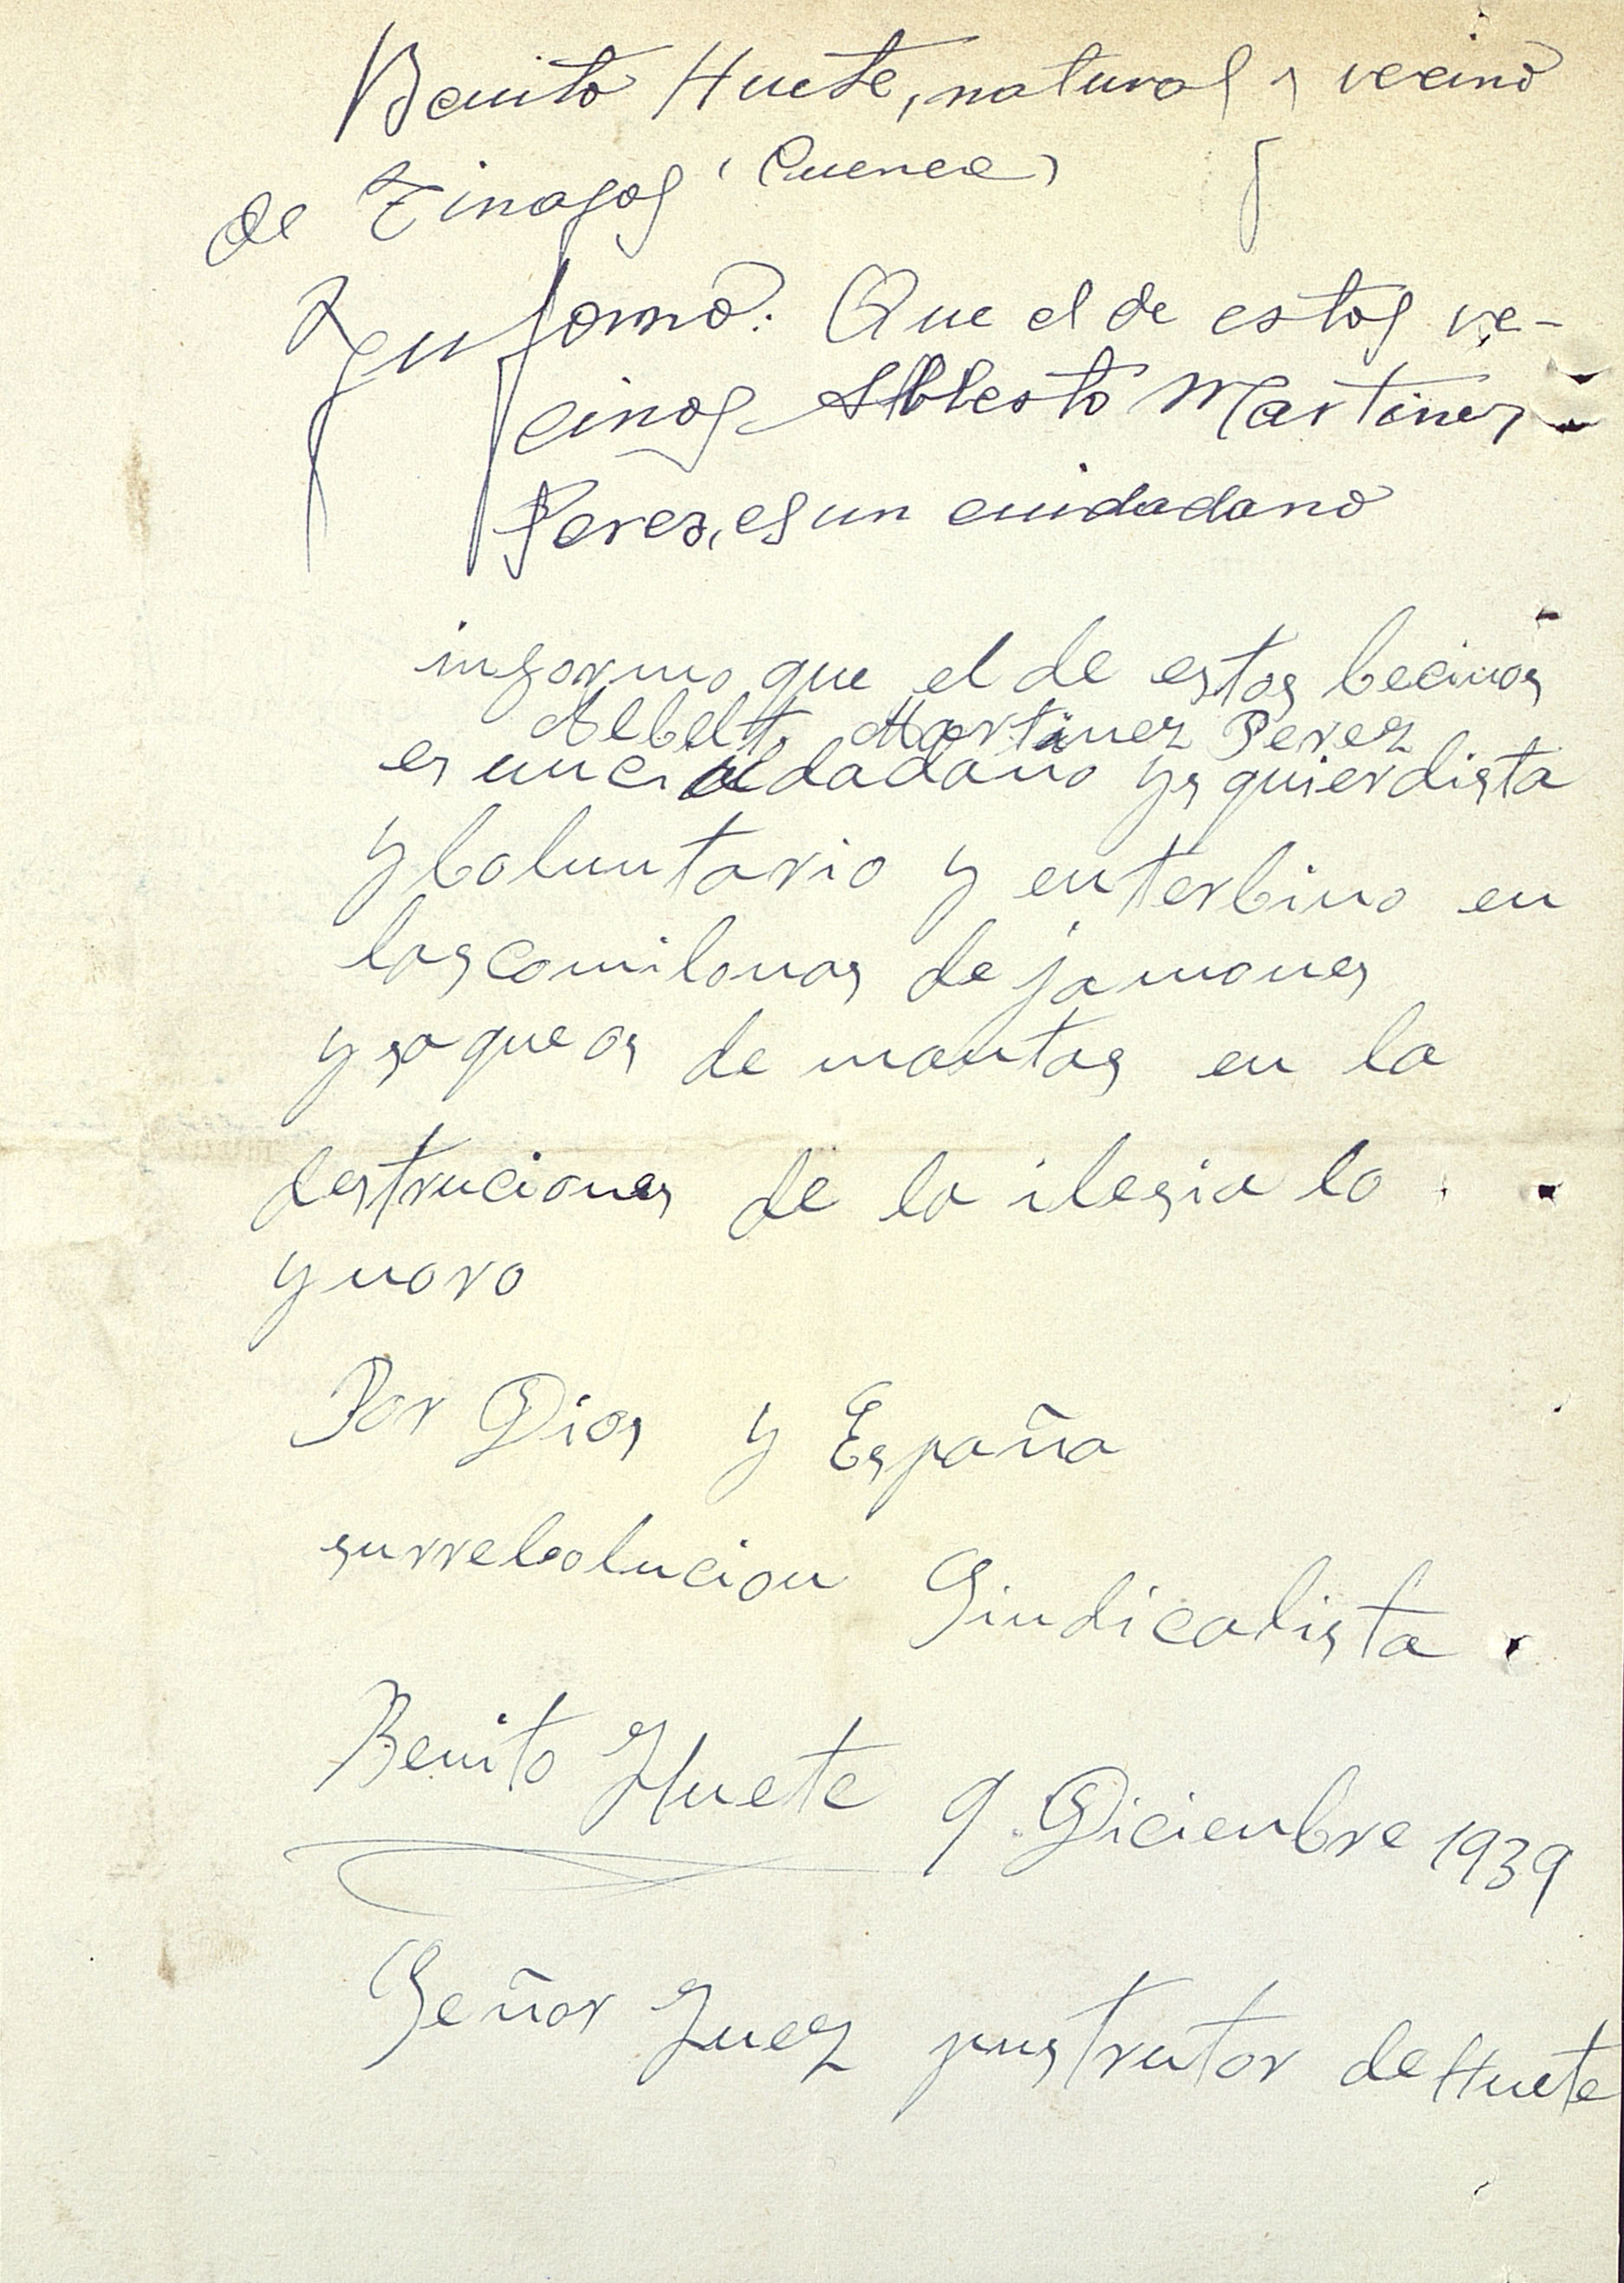 Benito Huete, natural y vecino
de Tinagos (Cuenca)
Ynformo: Que el de estos ve-
cinos Alberto Martinez
Perez, es un cuidadano
informo que el de estos becinos
Albelto Martinez Perez
es un ciudadano ysquierdista
y boluntario y enterbino en
las comilonas de jamones
y saqueos de mantas en la
destruciones de la ilesia lo
ynoro
Por Dios y España
surrebolucion Sindicalista
Benito Huete 9 Dicienbre 1939
Señor Juez ynstrutor de Huete